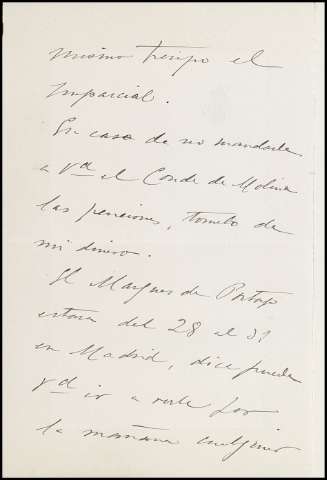 mismo tiempo el
Imparcial.
En caso de no mandarle
a Vd el Conde de Molina
las pensiones, tomelo de
mi dinero.
El Marques de Portago
estara del 28 al 31
en Madrid, dice puede
Vd ir a verle por
la mañana